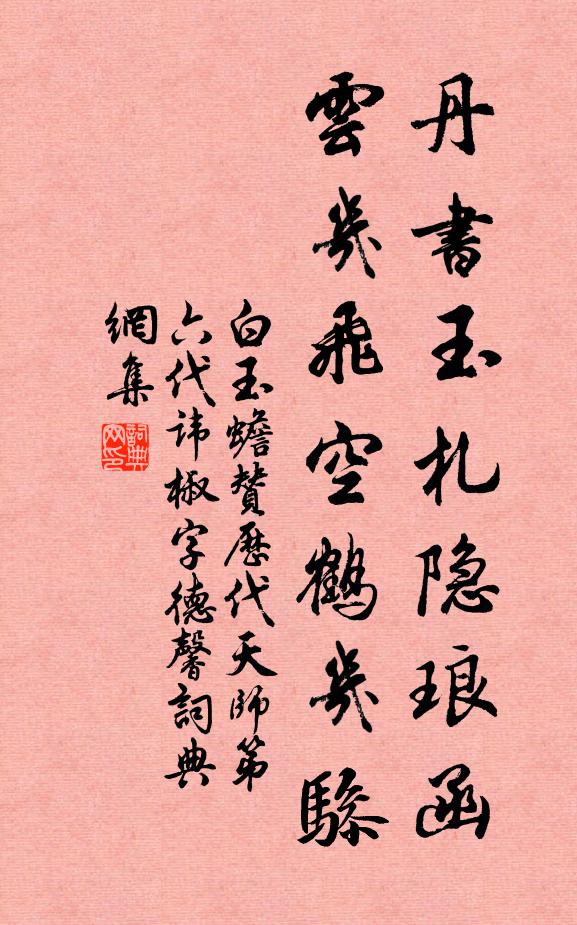 丹書玉札隐琅函
雲幾飛空鶴幾驂
白玉蟾贊歷代天師第
六代諱椒字德馨詞典
網集
詞典
网印